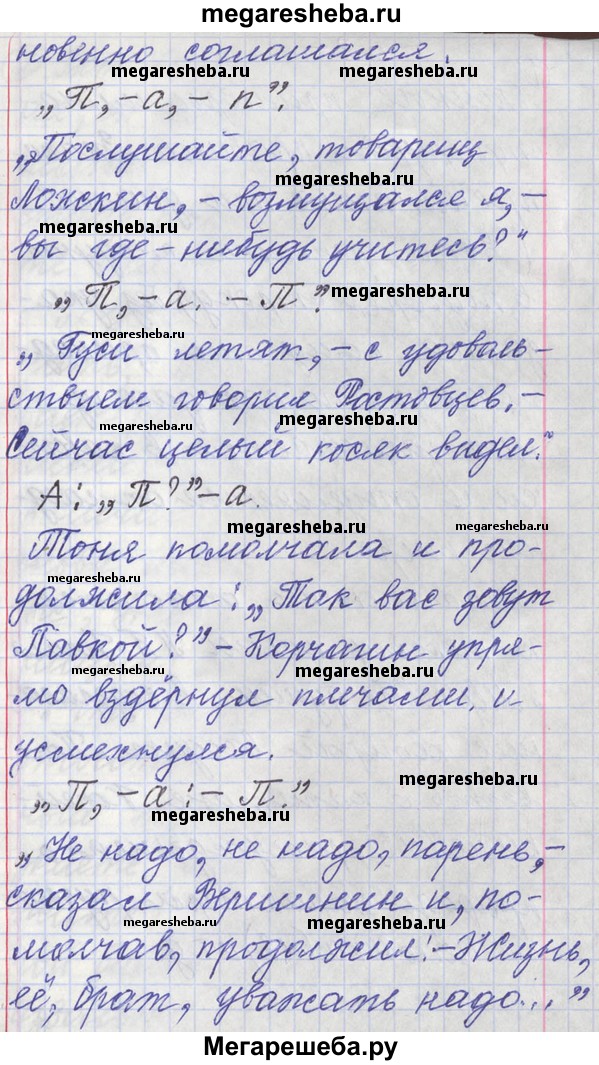 megaresheba.ru
новенно соглашался.
megaresheba.ru megaresheba.ru
„П, – а, – п”.
„Послушайте, товарищ
megaresheba.ru
Ложкин, – возмущался я, –
вы где-нибудь учитесь?“
„П, – а. – П.” megaresheba.ru
megaresheba.ru
„Гуси летят, – с удоволь-
ствием говорил Ростовцев. –
megaresheba.ru
Сейчас целый косяк видел.“
А: „П?” – а.
megaresheba.ru megaresheba.ru
Тоня помолчала и про-
megaresheba.ru
должила: „Так вас зовут
Павкой?” – Корчагин упря-
megaresheba.ru megaresheba.ru
мо вздёрнул плечами, и
усмехнулся.
„П, – а: – П.” megaresheba.ru
„Не надо, не надо, парень, –
megaresheba.ru
сказал Вершинин и, по-
megaresheba.ru megaresheba.ru
молчав, продолжил: – Жизнь,
её, брат, уважать надо...”
megaresheba.ru megaresheba.ru
Мегарешеба.ру